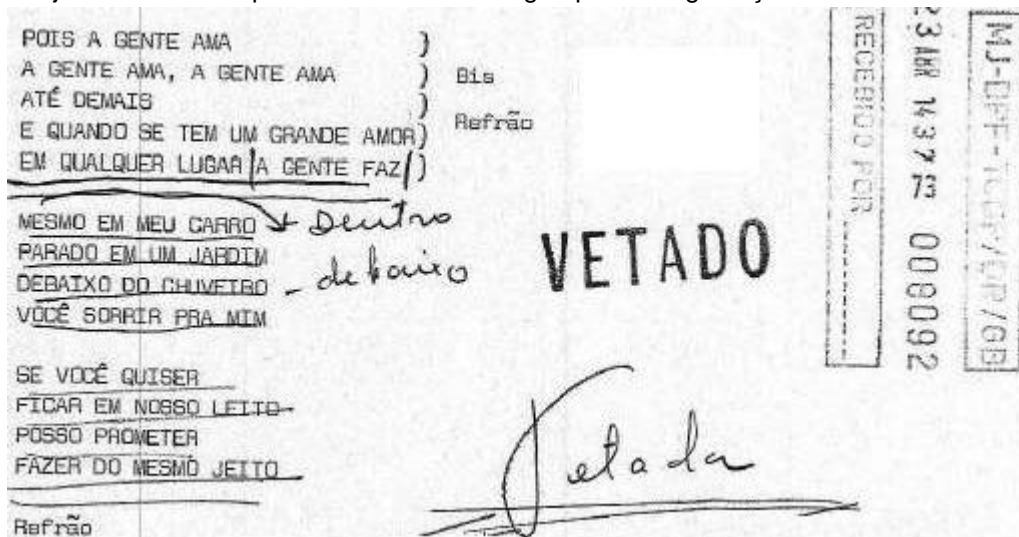 POIS A GENTE AMA )
A GENTE AMA, A GENTE AMA ) Bis
ATÉ DEMAIS )
E QUANDO SE TEM UM GRANDE AMOR) Refrão
EM QUALQUER LUGAR A GENTE FAZ )
MESMO EM MEU CARRO Dentro
PARADO EM UM JARDIM
DEBAIXO DO CHUVEIRO debaixo
VOCÊ SORRIR PRA MIM
VETADO
SE VOCÊ QUISER
FICAR EM NOSSO LEITO
POSSO PROMETER
FAZER DO MESMO JEITO
Vetada
Refrão
RECEBIDO POR
23 ABR 14 37 73 008092
MJ-DPF-